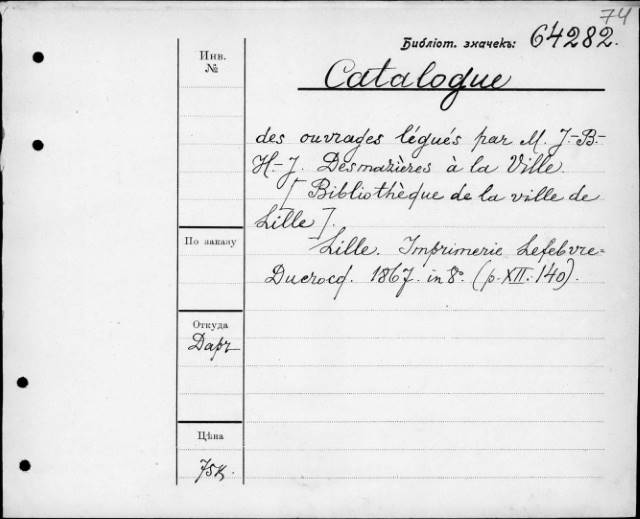 74
Библіот. значекъ: 64282.
Инв.
№
Catalogue
des ouvrages légués par M. J.-B.-
H.-J. Desmazières à la Ville.
[Bibliothèque de la ville de
Lille].
По заказу
Lille. Imprimerie Lefebvre=
Ducrocq. 1867. in 8º. (p. XII. 140).
Откуда
Даръ
Цѣна
75к.